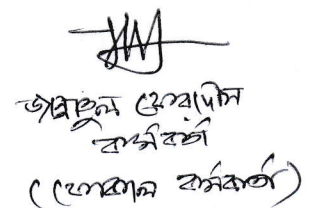 জান্নাতুল ফেরদৌস
কার্যকর্তা
(ফোকাল কর্মকর্তা)